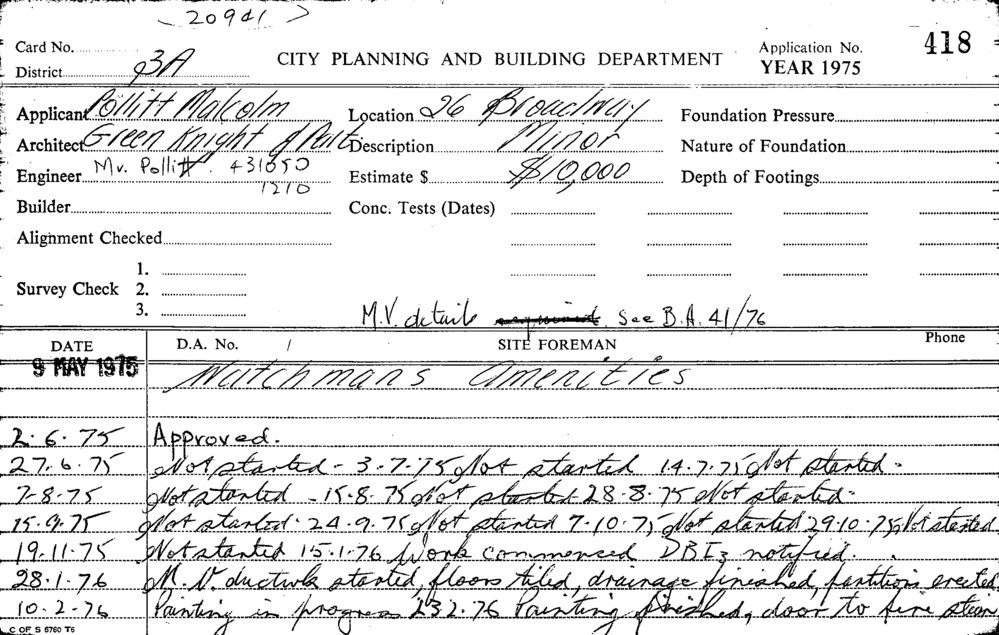 20941
Card No. CITY PLANNING AND BUILDING DEPARTMENT Application No. 418
District 3A YEAR 1975
Applicant Pollitt Malcolm Location 26 Broadway Foundation Pressure
Architect Green Knight & Description Minor Nature of Foundation
Engineer Mr. Pollitt. 431050 Estimate $ $10,000 Depth of Footings
1210
Builder Conc. Tests (Dates)
Alignment Checked
1.
Survey Check 2.
3.
M.V. details required. See B.A. 41/76
DATE D.A. No. / SITE FOREMAN Phone
9 MAY 1975 Watchmans Amenities
2.6.75 Approved.
27.6.75 Not started - 3-7-75 Not started 14.7.75 Not started.
7-8-75 Not started - 15-8-75 Not started 28-8-75 Not started.
15.9.75 Not started. 24.9.75 Not started 7-10-75 Not started 29.10.75 Not started
19.11.75 Not started 15.1.76 Work commenced DBI notified.
28.1.76 M.V. ductwk started, floors tiled, drainage finished, partitions erected
10.2.76 Painting in progress 23.2.76 Painting finished, door to fire stairs
C OF S 6760 T6